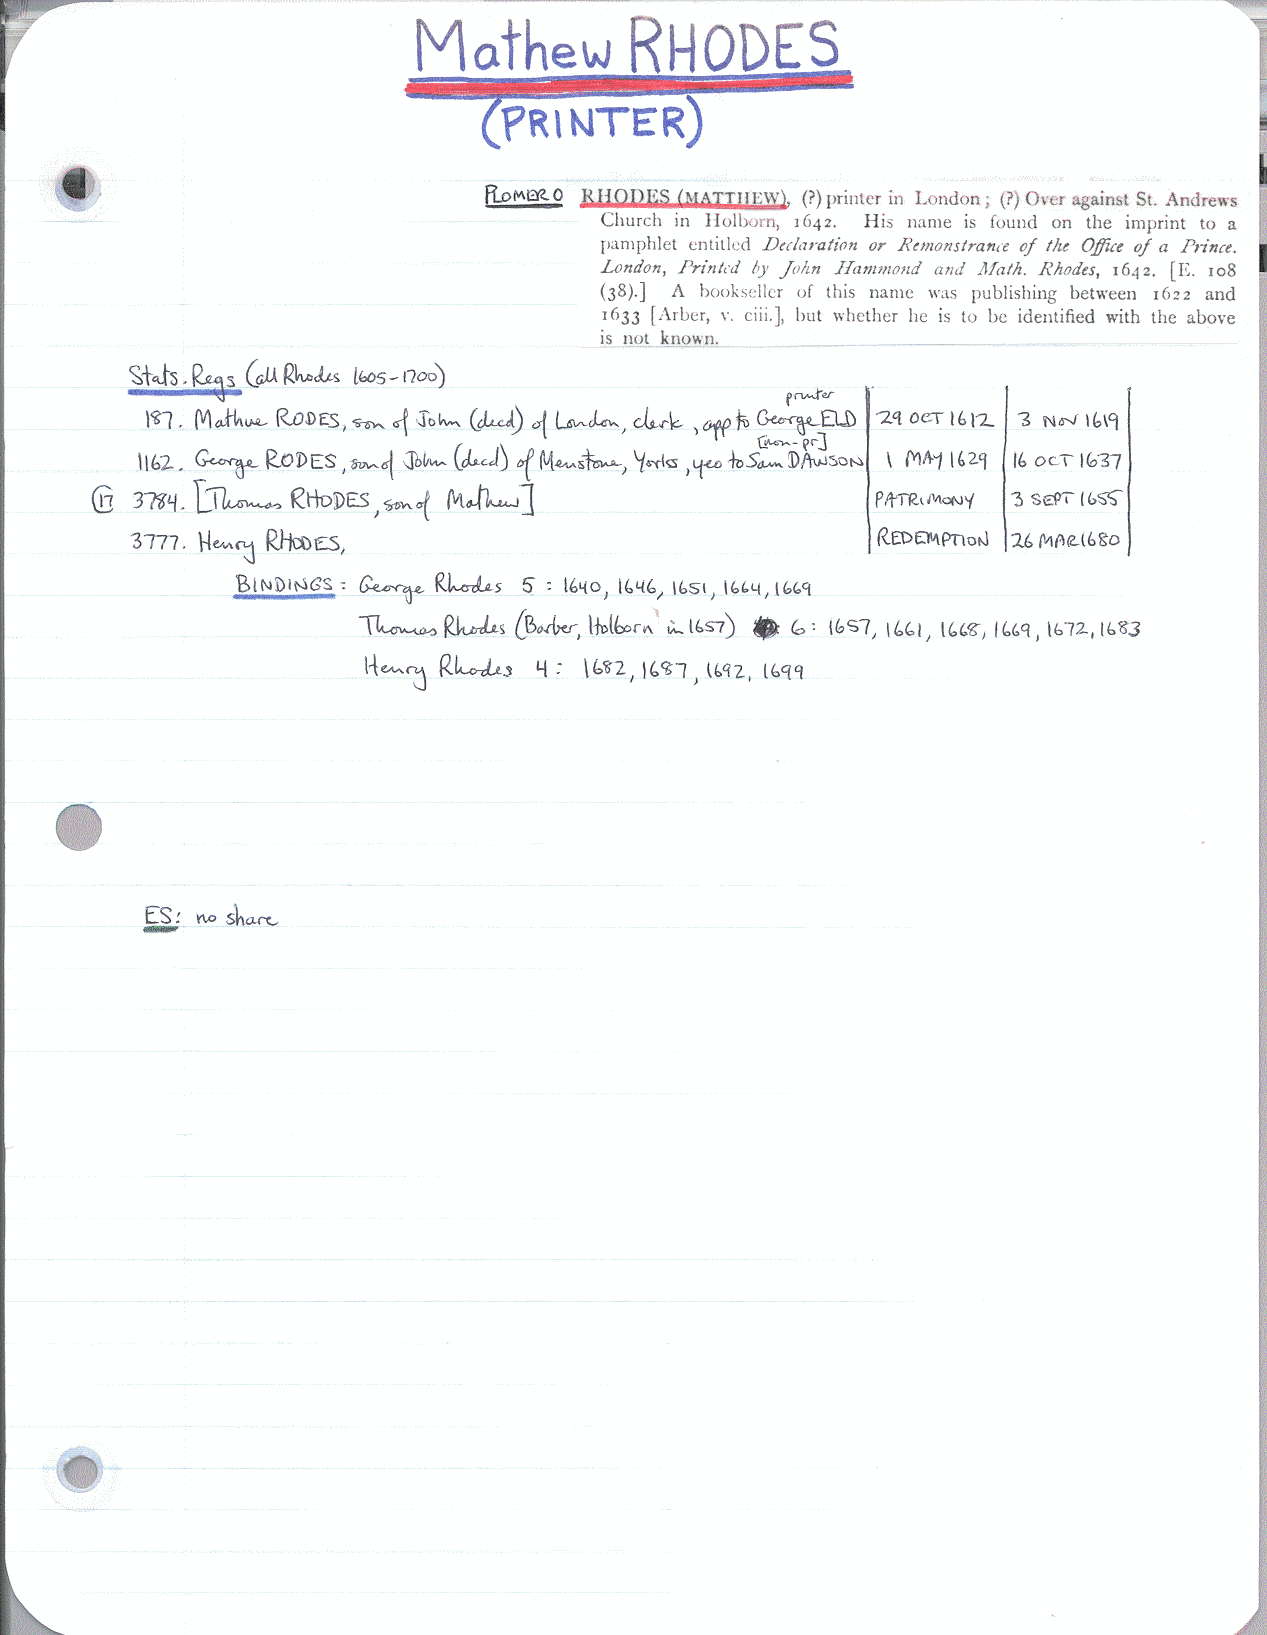 Mathew RHODES
(PRINTER)
PLOMER O RHODES (MATTHEW), (?) printer in London; (?) Over against St. Andrews
Church in Holborn, 1642. His name is found on the imprint to a
pamphlet entitled Declaration or Remonstrance of the Office of a Prince.
London, Printed by John Hammond and Math. Rhodes, 1642. [E. 108
(38).] A bookseller of this name was publishing between 1622 and
1633 [Arber, v. ciii.], but whether he is to be identified with the above
is not known.
Stats. Regs (all Rhodes 1605-1700)
printer
187. Mathue RODES, son of John (decd) of London, clerk, app to George ELD 29 OCT 1612 3 NOV 1619
[non-pr]
1162. George RODES, son of John (decd) of Menstone, Yorks, yeo to Sam DAWSON 1 MAY 1629 16 OCT 1637
17 3784. [Thomas RHODES, son of Mathew] PATRIMONY 3 SEPT 1655
3777. Henry RHODES, REDEMPTION 26 MAR 1680
BINDINGS: George Rhodes 5: 1640, 1646, 1651, 1664, 1669
Thomas Rhodes (Barber, Holborn in 1657) 6: 1657, 1661, 1668, 1669, 1672, 1683
Henry Rhodes 4: 1682, 1687, 1692, 1699
ES: no share